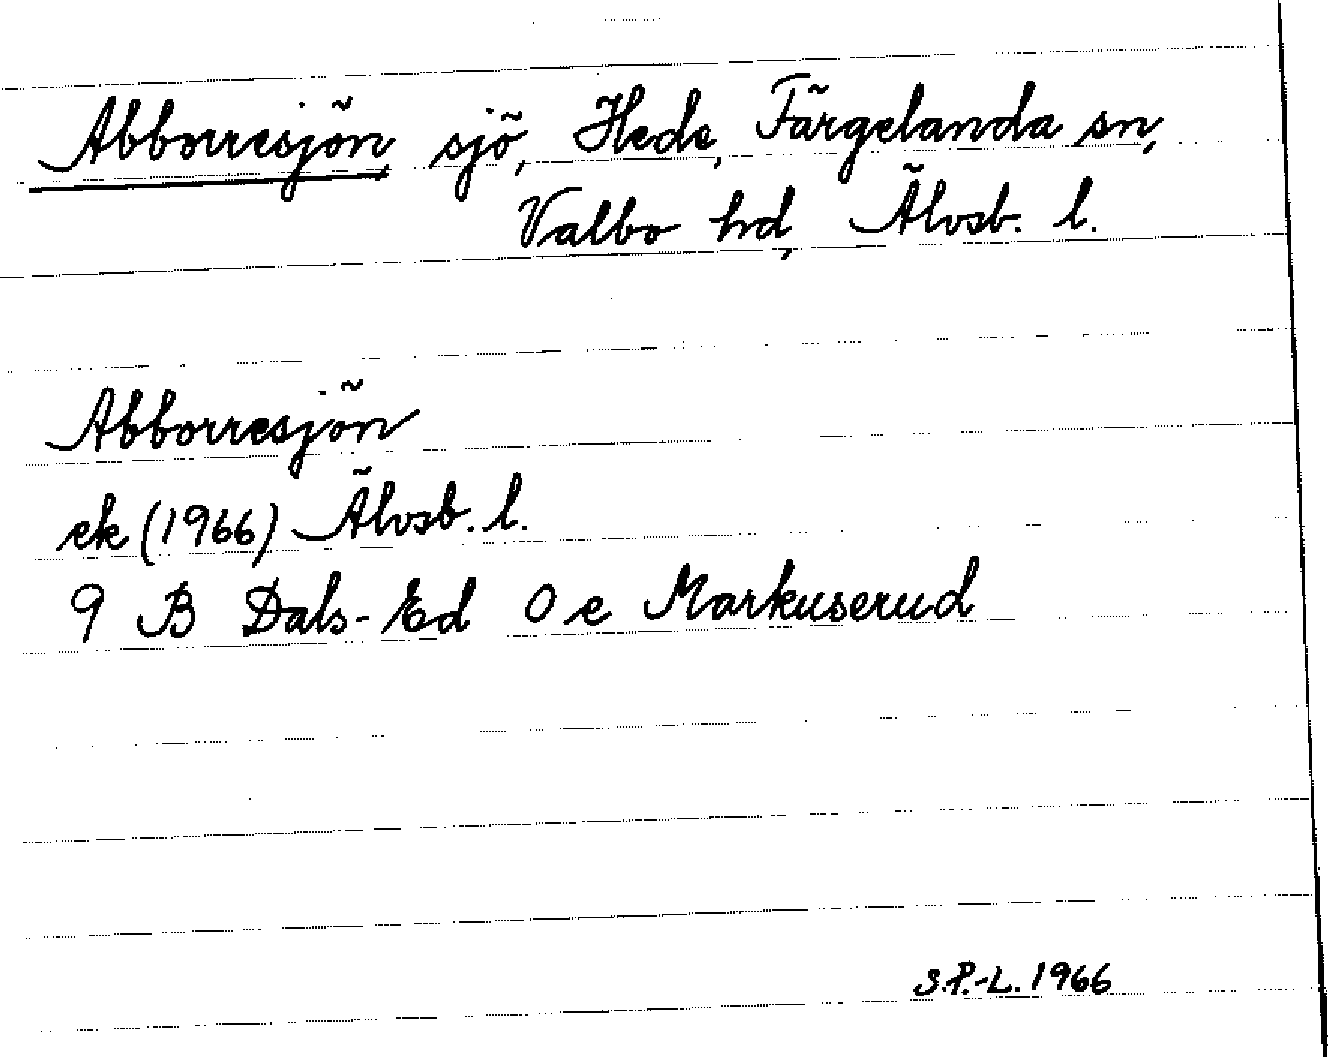 Abborresjön, sjö, Hede, Färgelanda sn,
Valbo hd, Älvsb. l.
Abborresjön
ek (1966) Älvsb. l.
9 B Dals-Ed 0 e Markuserud
S.P.-L. 1966